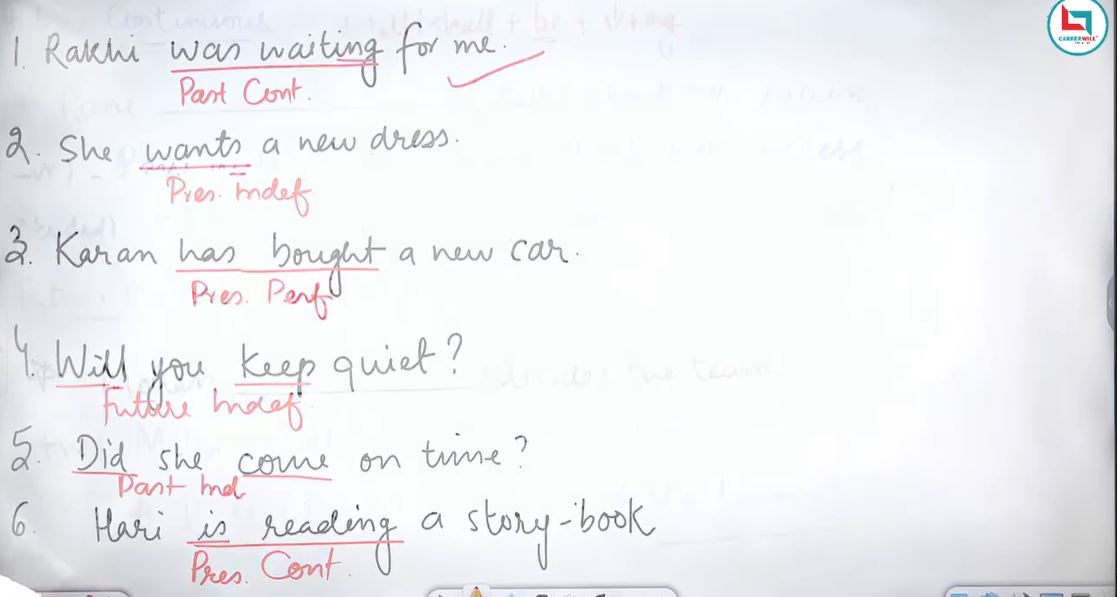 1. Rakhi was waiting for me.
Past Cont.
2. She wants a new dress.
Pres. Indef.
3. Karan has bought a new car.
Pres. Perf
4. Will you keep quiet?
Future Indef
5. Did she come on time?
Past Ind
6. Hari is reading a story-book
Pres. Cont.
CAREERWILL